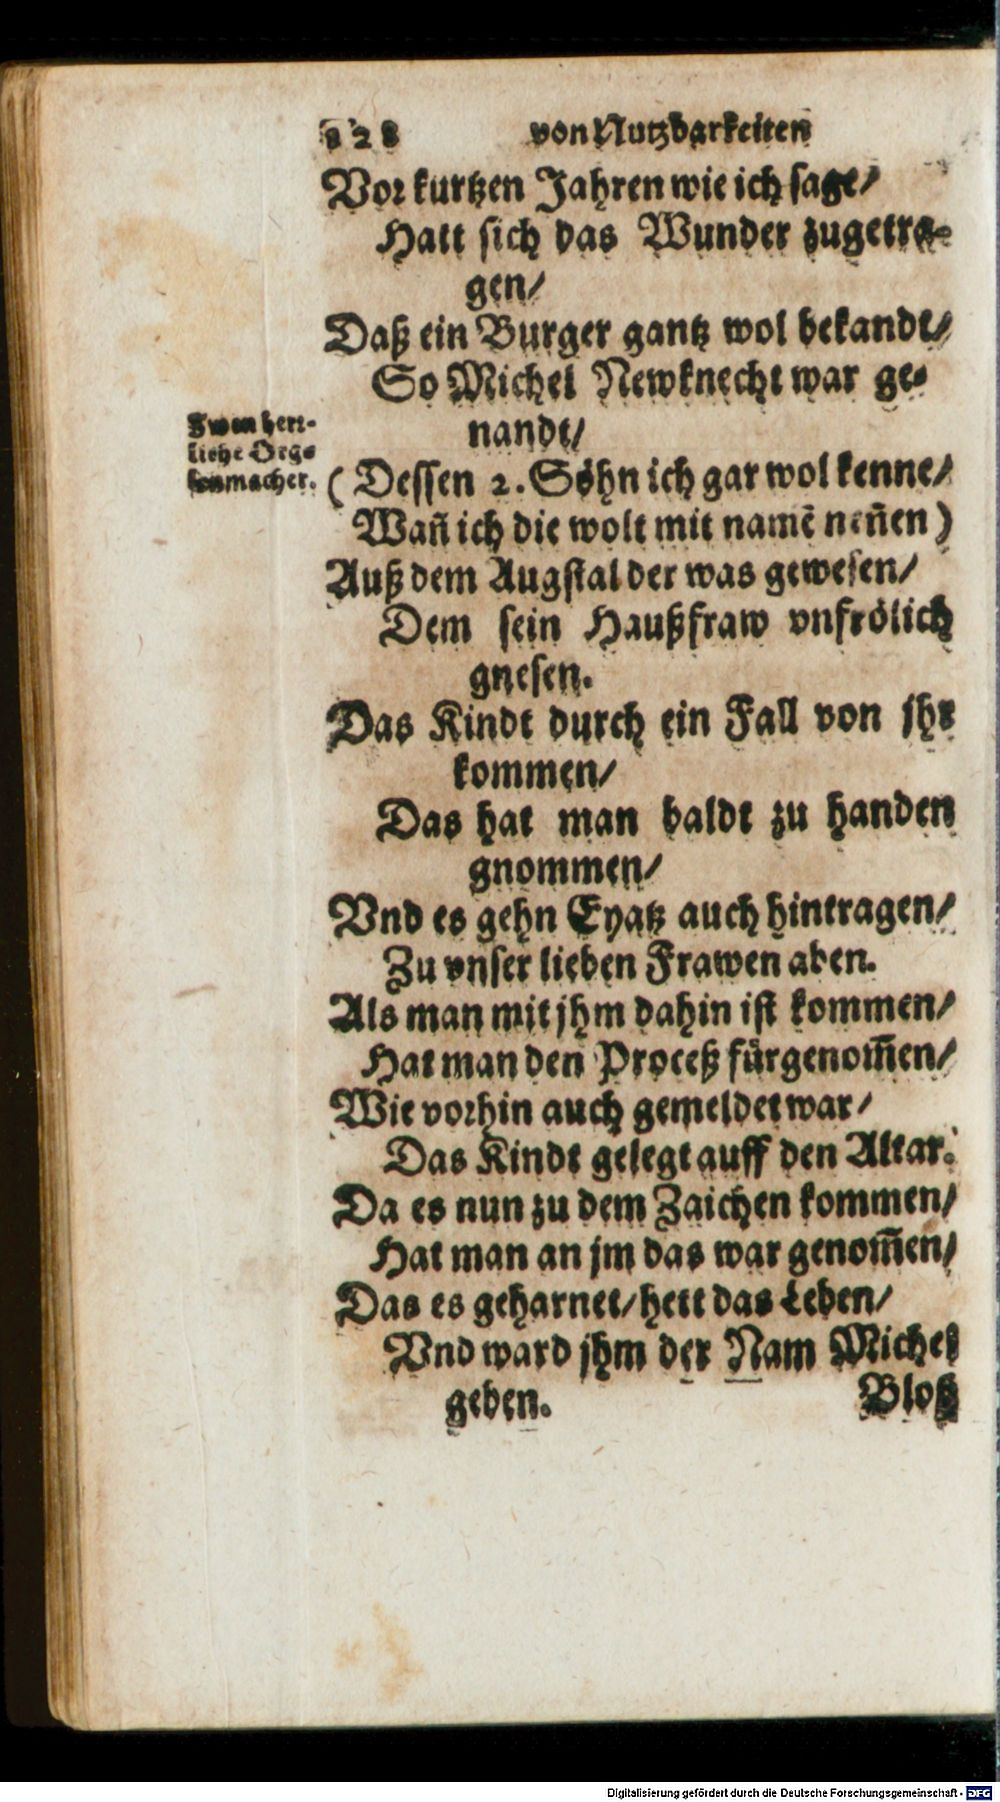 128 von Nutzbarkeiten
Vor kurtzen Jahren wie ich sage/
Hatt sich das Wunder zugetra-
gen/
Daß ein Burger gantz wol bekandt/
So Michel Newknecht war ge-
nandt/
Zwen herr-
liche Org-
lenmacher.
(Dessen 2. Söhn ich gar wol kenne/
Wañ ich die wolt mit namē neñen)
Auß dem Augstal der was gewesen/
Dem sein Haußfraw vnfrölich
gnesen.
Das Kindt durch ein Fall von jhr
kommen/
Das hat man baldt zu handen
gnommen/
Vnd es gehn Eyatz auch hintragen/
Zu vnser lieben Frawen aben.
Als man mit jhm dahin ist kommen/
Hat man den Proceß fürgenom̄en/
Wie vorhin auch gemeldet war/
Das Kindt gelegt auff den Altar.
Da es nun zu dem Zaichen kommen/
Hat man an jm das war genom̄en/
Das es geharnet/hett das Leben/
Vnd ward jhm der Nam Michel
geben. Bloß
Digitalisierung gefördert durch die Deutsche Forschungsgemeinschaft - DFG